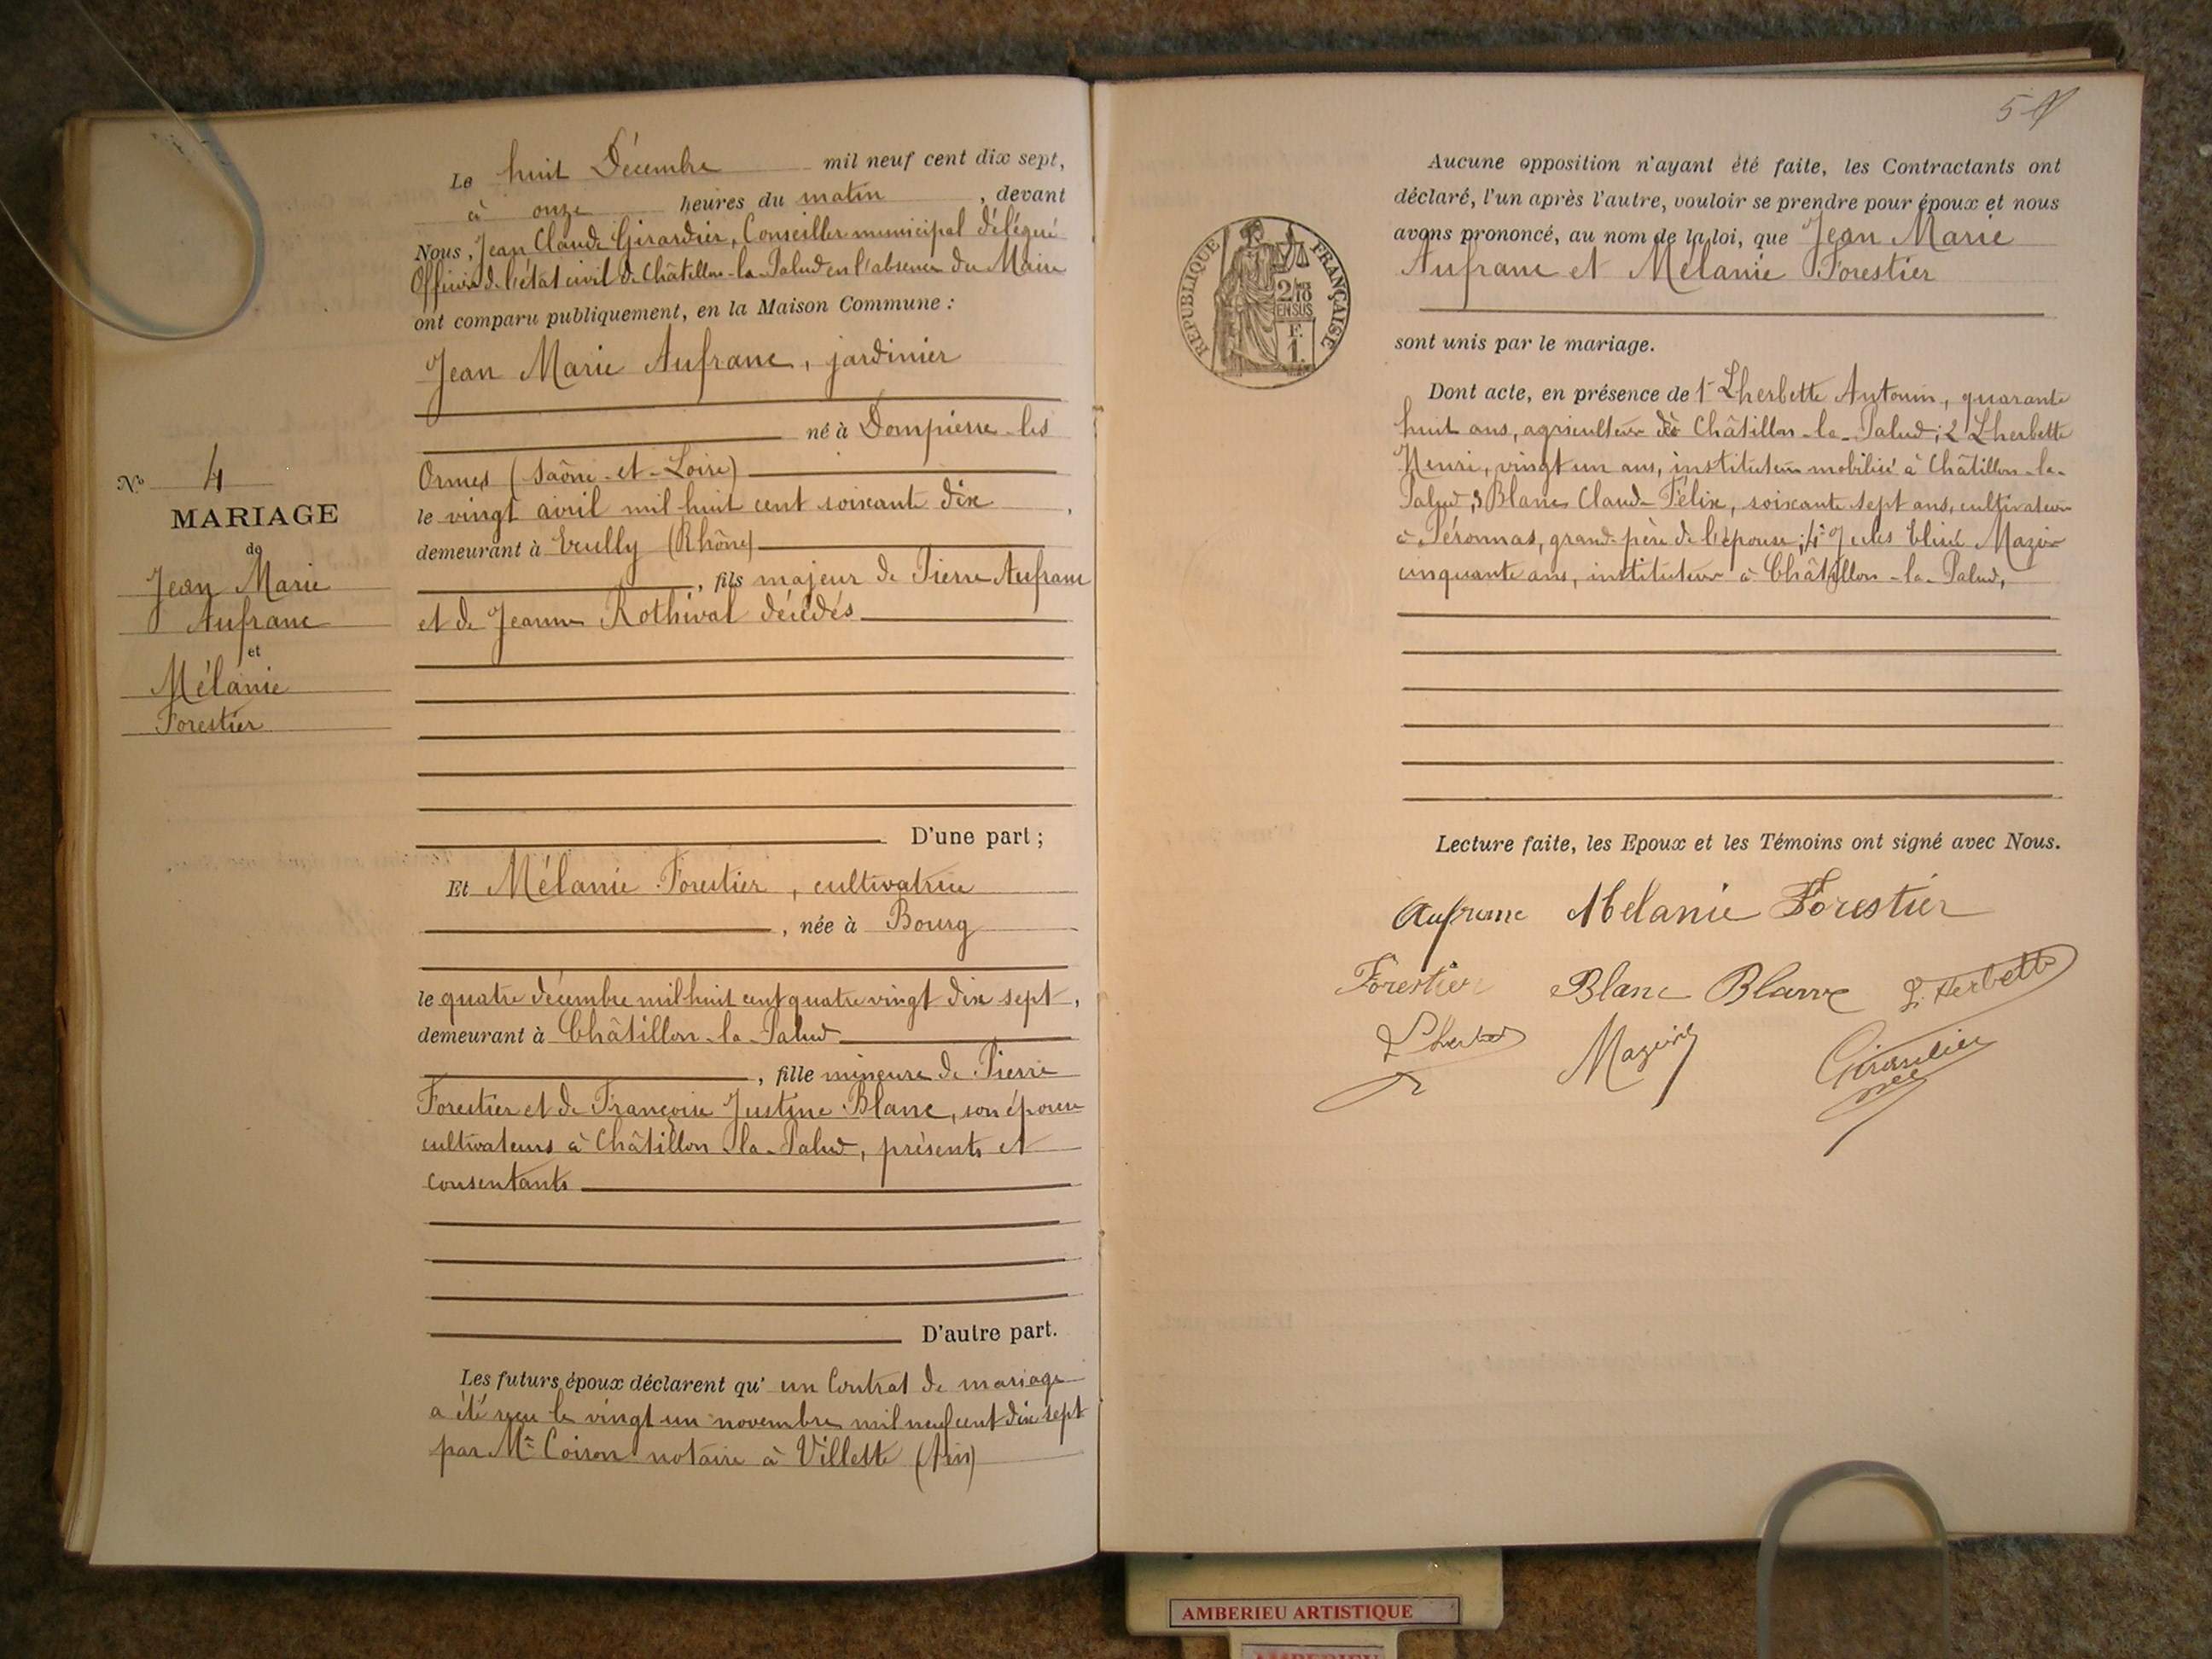 Le huit Décembre mil neuf cent dix sept,
à onze heures du matin, devant
Nous, Jean Claude Girardier, Conseiller municipal délégué
Officier de l'état civil de Châtillon-la-Palud en l'absence du Maire
ont comparu publiquement, en la Maison Commune :
Jean Marie Aufranc, jardinier
né à Dompierre-les
Ormes (Saône-et-Loire)
le vingt avril mil huit cent soixante dix,
demeurant à Ecully (Rhône)
, fils majeur de Pierre Aufranc
et de Jeanne Rothival décédés
No 4
MARIAGE
de
Jean Marie
Aufranc
et
Mélanie
Forestier
D'une part ;
Et Mélanie Forestier, cultivatrice
, née à Bourg
le quatre décembre mil huit cent quatre vingt dix sept,
demeurant à Châtillon-la-Palud
, fille mineure de Pierre
Forestier et de Françoise Justine Blanc, son épouse
cultivateurs à Châtillon-la-Palud, présents et
consentants
D'autre part.
Les futurs époux déclarent qu' un Contrat de mariage
a été reçu le vingt un novembre mil neuf cent dix sept
par Me Coiron notaire à Villette (Ain)
5
Aucune opposition n'ayant été faite, les Contractants ont
déclaré, l'un après l'autre, vouloir se prendre pour époux et nous
avons prononcé, au nom de la loi, que Jean Marie
Aufranc et Mélanie Forestier
sont unis par le mariage.
REPUBLIQUE FRANÇAISE
2/10
EN SUS
F.
1.
Dont acte, en présence de 1° Lherbette Antonin, quarante
huit ans, agriculteur à Châtillon-la-Palud; 2 Lherbette
Henri, vingt un ans, instituteur mobilisé à Châtillon-la-
Palud; 3 Blanc Claude-Félix, soixante sept ans, cultivateur
à Péronnas, grand-père de l'épouse; 4° Jules Elisée Mazuir
cinquante ans, instituteur à Châtillon-la-Palud,
Lecture faite, les Epoux et les Témoins ont signé avec Nous.
Aufranc Mélanie Forestier
Forestier Blanc Blanc Lherbette
Lherbette Mazuir Girardier
AMBERIEU ARTISTIQUE
AMBERIEU